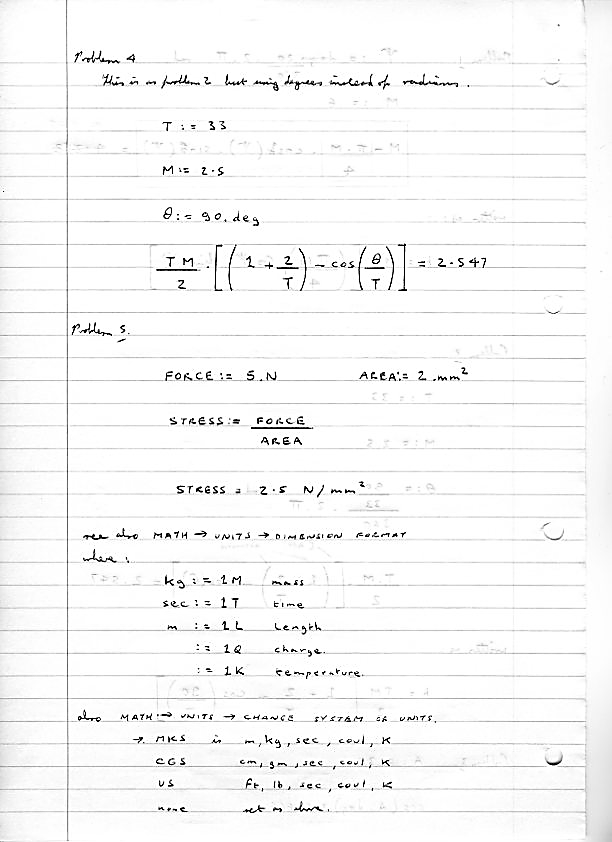 Problem 4
This is as problem 2 but using degrees instead of radians.
T := 33
M := 2.5
θ := 90.deg
TM/2 . [(1 + 2/T) - cos(θ/T)] = 2.547
Problem 5.
FORCE := 5.N AREA := 2.mm²
STRESS := FORCE/AREA
STRESS = 2.5 N/mm²
see also MATH → UNITS → DIMENSION FORMAT
where :
kg := 1M mass
sec := 1T time
m := 1L Length
:= 1Q charge.
:= 1K temperature.
also MATH → UNITS → CHANGE SYSTEM OF UNITS.
→ MKS is m, kg, sec, coul, K
CGS cm, gm, sec, coul, K
US ft, lb, sec, coul, K
none set as above.